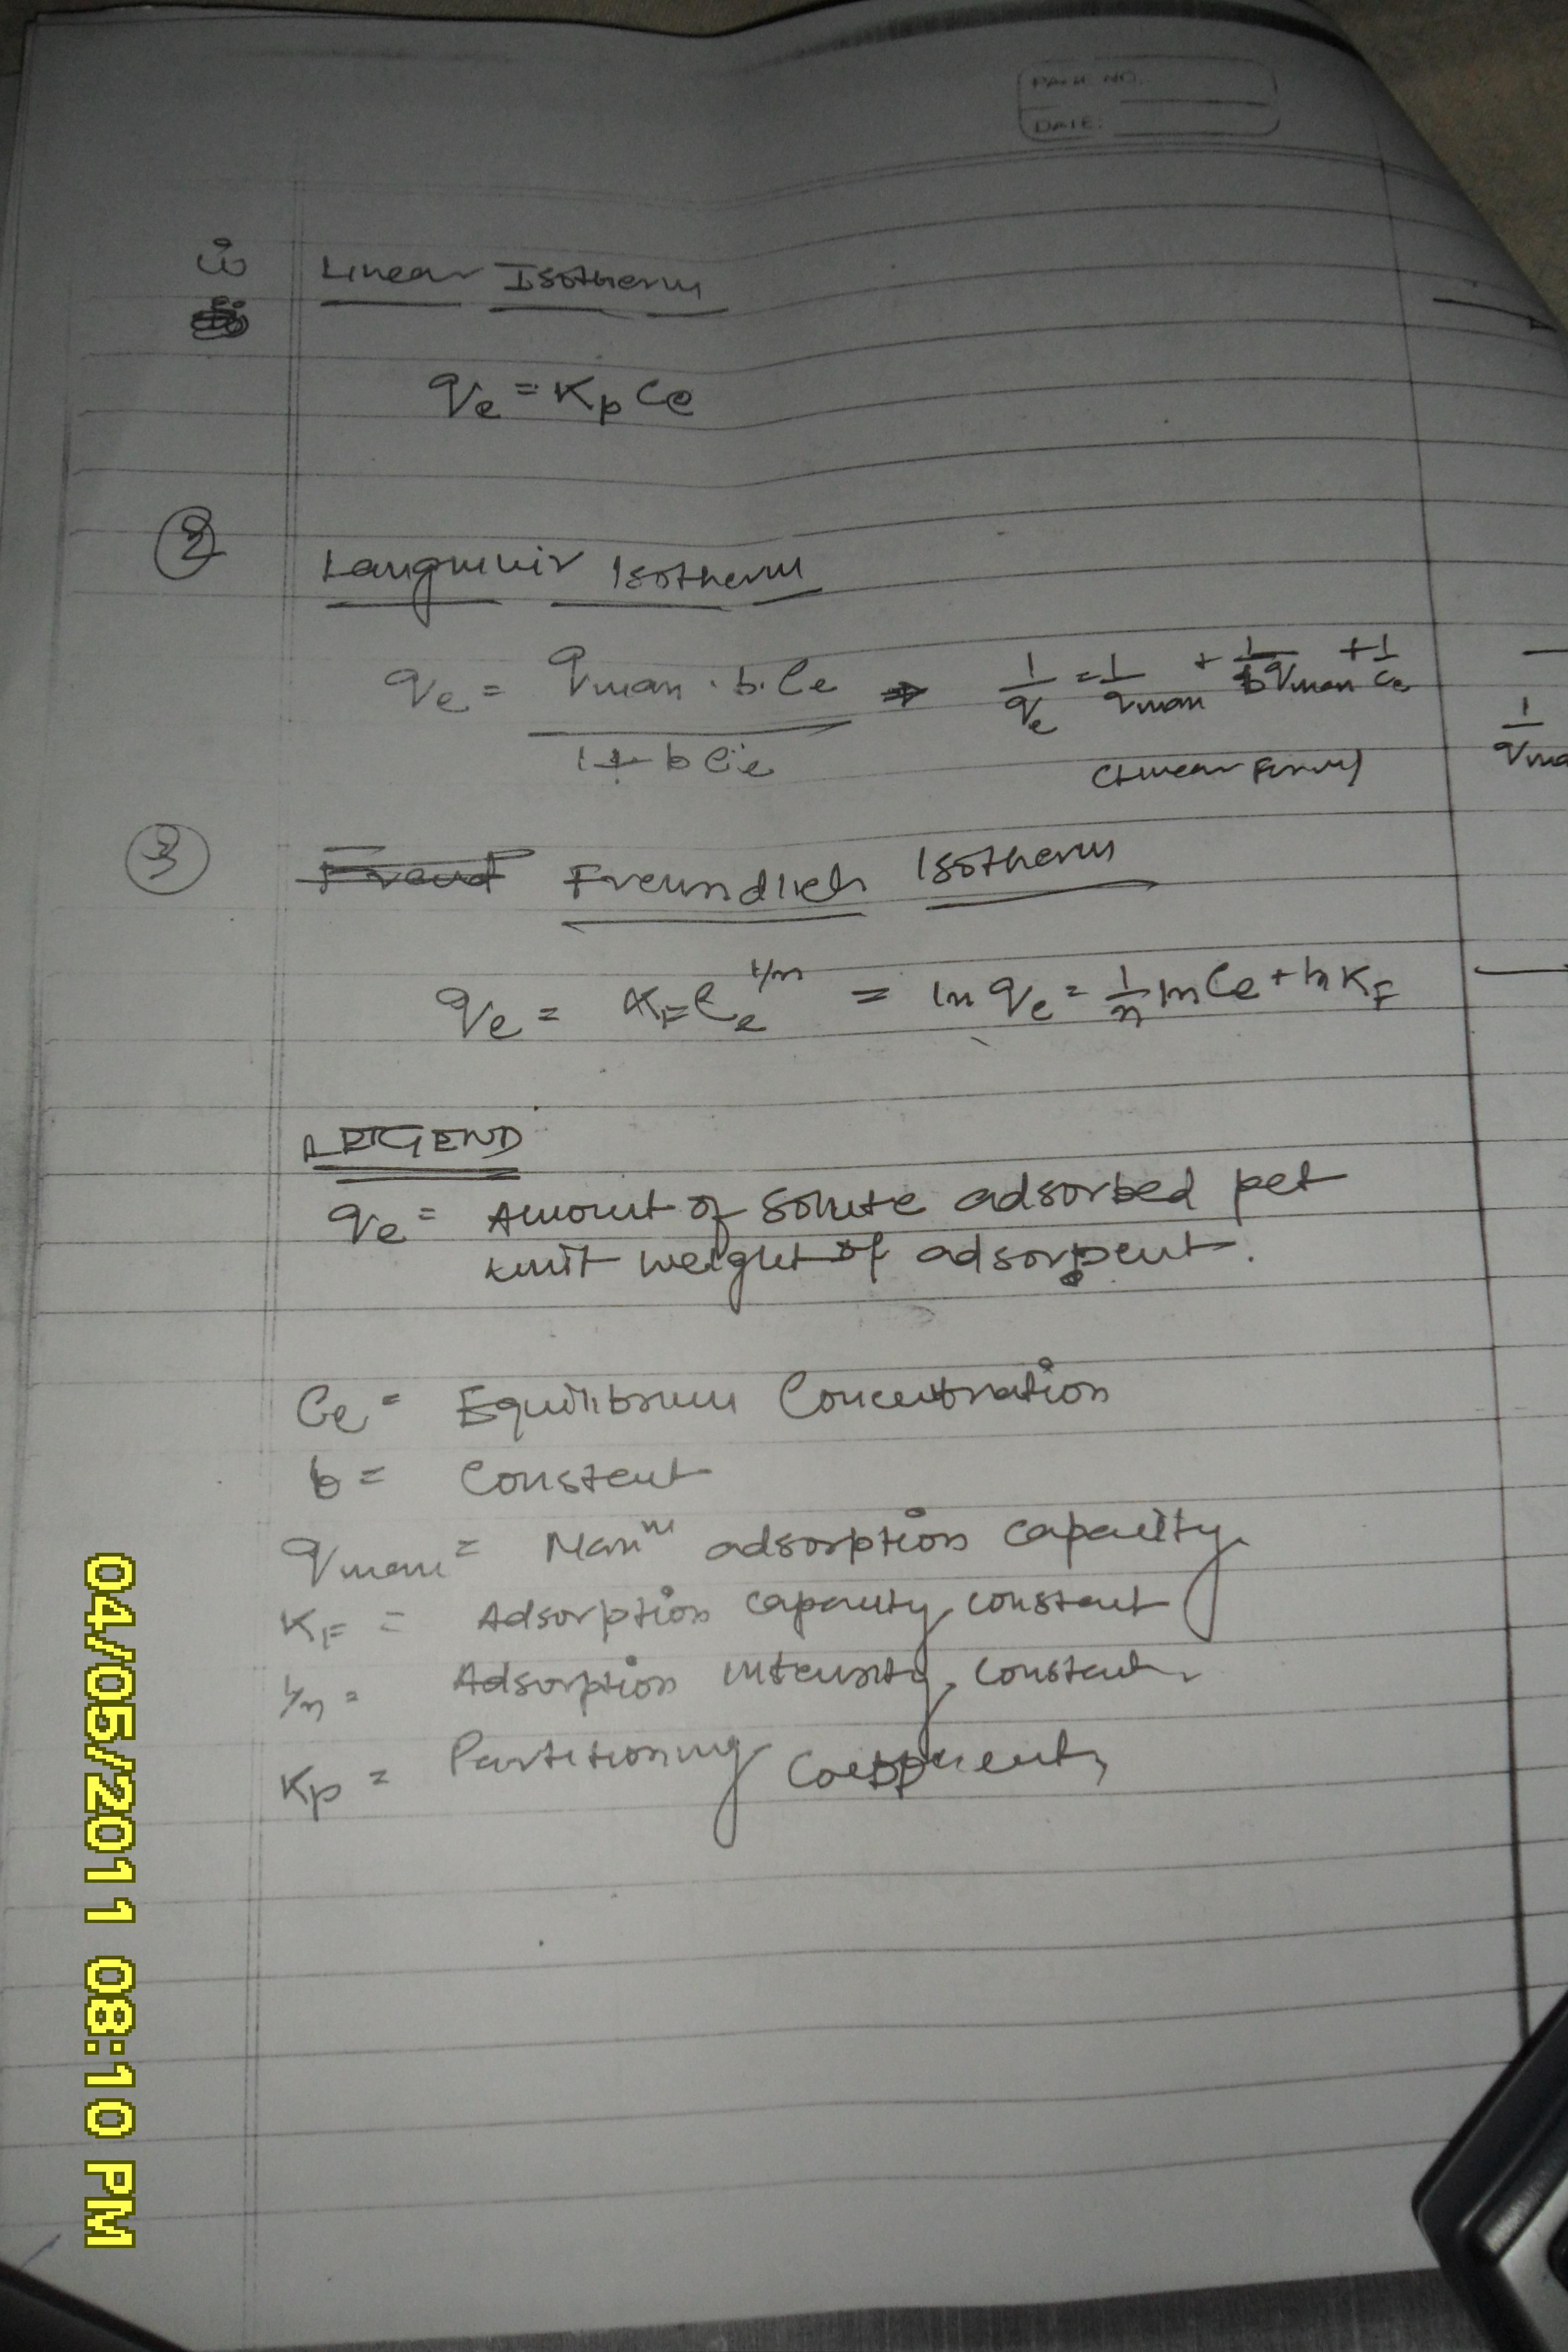 PAGE NO.
DATE:
i) Linear Isotherm
qe = Kp Ce
② Langmuir Isotherm
qe = qmax · b · Ce / 1 + b Ce ⇒ 1/qe = 1/qmax + 1/bqmax + 1/Ce
(Linear Form)
1/qma
③ Freud Freundlich Isotherm
qe = KF Ce^1/n = ln qe = 1/n ln Ce + ln KF
LEGEND
qe = Amount of Solute adsorbed per
unit weight of adsorpent.
Ce = Equilibrium Concentration
b = Constent
qmax = Maxm adsorption capacity
KF = Adsorption capacity constant
1/n = Adsorption intensity constant
Kp = Partitioning Coefficient
04/05/2011 08:10 PM